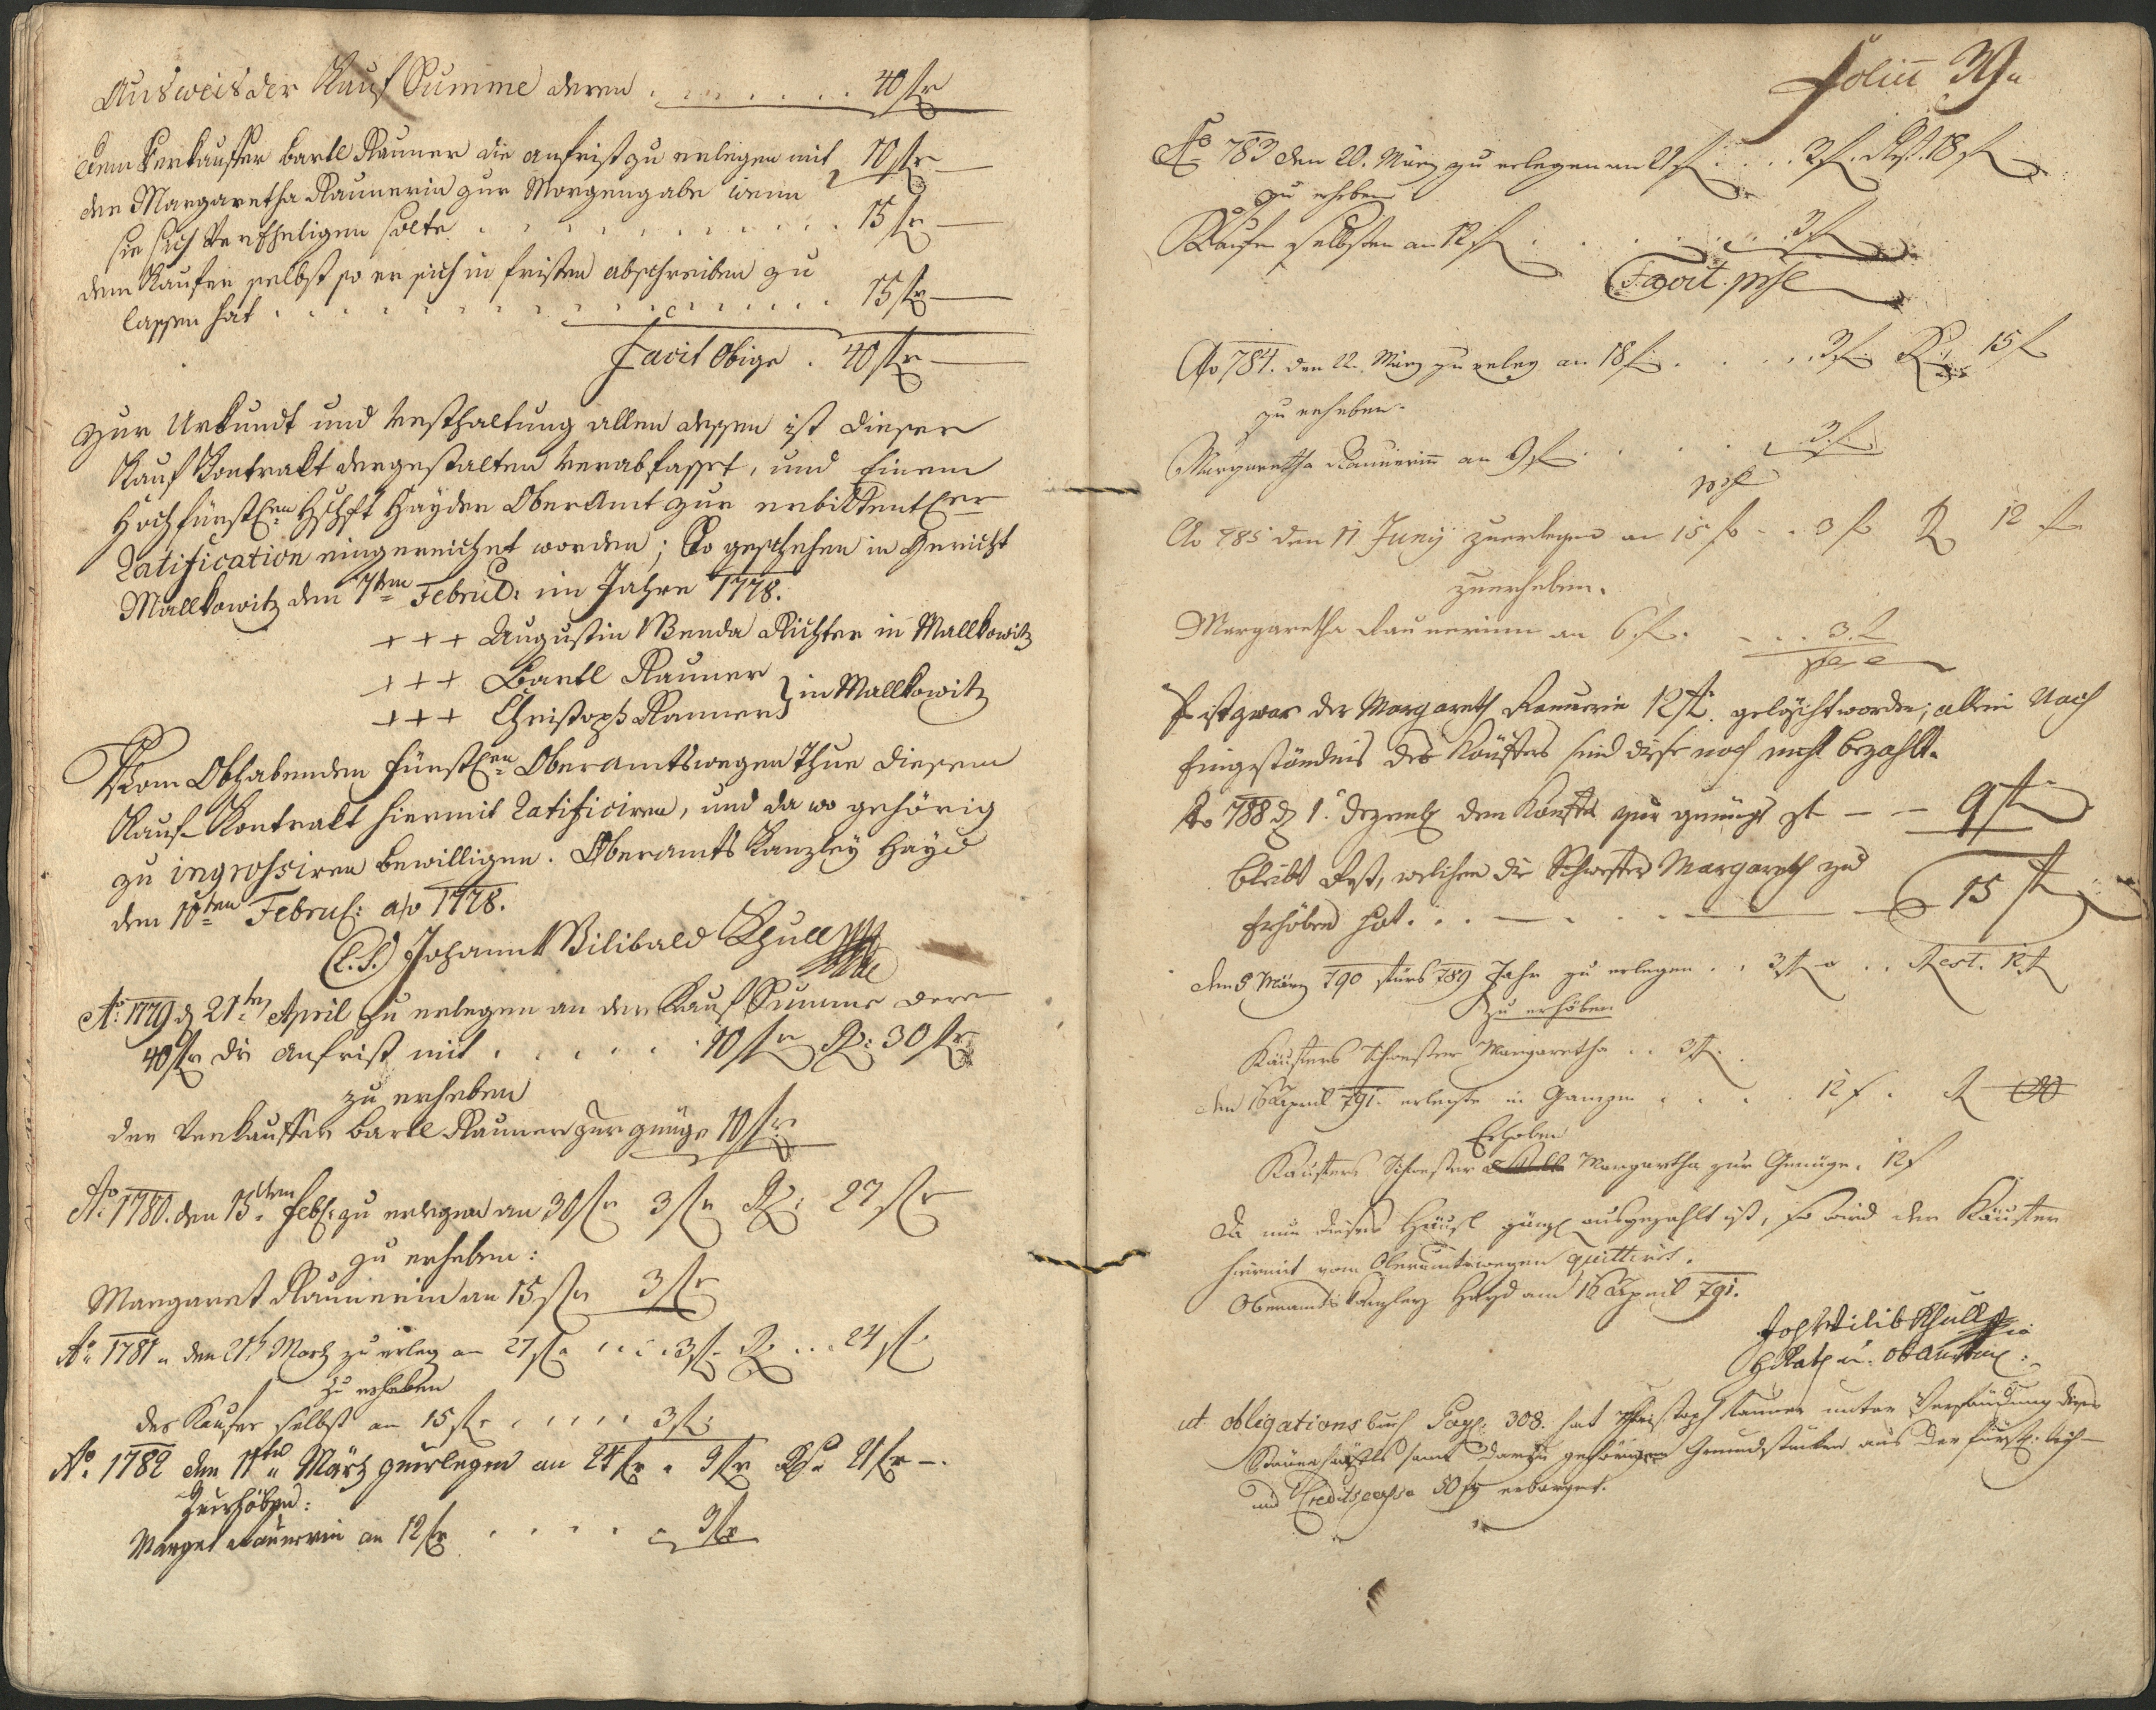 Ausweis der Kauf Summe deren . . . . . . . 40 fr
dem Verkauffer Bartl Rauner die anfrist zu erlegen mit 10 fr —
der Margaretha Raunerin zur Morgengabe wenn
sie sich Verehligen solte . . . . . . . . . 15 fr —
dem Kaufer selbst so er sich in fristen abschreiben zu
lassen hat . . . . . . . . . . . . 15 fr —
Facit Obige . 40 fr —
zur Urkundt und Vesthaltung allen dessen ist dieser
Kauf Kontrakt dergestalten Verabfasset, und Einem
Hochfürstl. Hschft Hayder OberAmt zur erbittenten
Ratification eingereichet worden; So geschehen in Gericht
Mallkowitz den 7ten Febru: im Jahre 1778.
+ + + Augustin Wenda Richter in Mallkowitz
+ + + Bartl Rauner
+ + + Christoph Rauner } in Mallkowitz
Vom Obhabenden Fürstl. Oberamtswegen Thue diesem
Kauf Kontrakt hiermit Ratificiren, und da wo gehörig
zu ingrossiren bewilligen. Oberamts Kanzley Hayd
den 10ten Febru: ao 1778.
(L.S.) Johann Wilibald Schull
Ao. 1779 d 21ten April zu erlegen an der Kauf Summe deren
40 fr die anfrist mit . . . . . . 10 fr R: 30 fr
zu erheben
der Verkauffer Bartl Rauner zur gnüge 10 fr
Ao. 1780. den 15ten Feb: zu erlegen an 30 fr 3 fr R: 27 fr
zu erheben:
Margaret Raunerin an 15 fr 3 fr
Ao. 1781 den 21t Martz zu erleg an 27 fr . . . . 3 fr R . . . 24 fr
zu erheben
der Kaufer selbst an 15 fr . . . . . 3 fr
Ao. 1782 den 11ten März zuerlegen an 24 fr . 3 fr R. 21 fr —.
Zuerhöben:
Marget Raunerin an 12 fr . . . . . 3 fr
Ao 783 den 20. März zu erlegen an 21 f . . . 3 f. Rest. 18 f
zu erheben
Käufer selbsten an 12 f . . . . . . 3 f
Facit
Ao 784. den 22. März zu erleg an 18 f . . . . 3 f R: 15 f
zu erheben.
Margaretha Raunerin an 9 f . . . . 3 f
Ao 785 den 11 Juny zuerlegen an 15 f . . 3 f R 12 f
zuerheben.
Margaretha Raunerinn an 6 f. . . . 3 f
Es ist zwar der Margareth Raunerin 12 f. gelöscht worden; allein Nach
Eingeständnis des Käuffers sind diese noch nicht bezahlt.
Ao 788 d 1. Dezemb den Käuffer zur genüge — — 9 f
bleibt Rest, welchen die Schwester Margareth zu
Erhöben hat. . . — . . — 15 f
den 5 März 790 fürs 789 Jahr zu erlegen . . 3 f . . Rest. 12 f
zu erhöben
Käuffers Schwester Margaretha . . 3 f.
den 16 April 791. erlegte in Ganzen . . . . 12 f . R
Erhoben
Käuffers Schwester Margartha zur Genüge. 12 f
Da nun dieses Häusl gänzl ausgezahlt ist, so wird der Käuffer
hiermit vom Oberamtswegen quittiret.
Oberamts Kanzley Hayd am 16 April 791.
Joh Wilib Schull
ut Obligationsbuch Pag: 308. hat Christoph Rauner unter Verpfändung dieses
Häusls samt darzu gehörigen Grundstücken aus der fürstl.
und Creditscassa 50 f erborget.